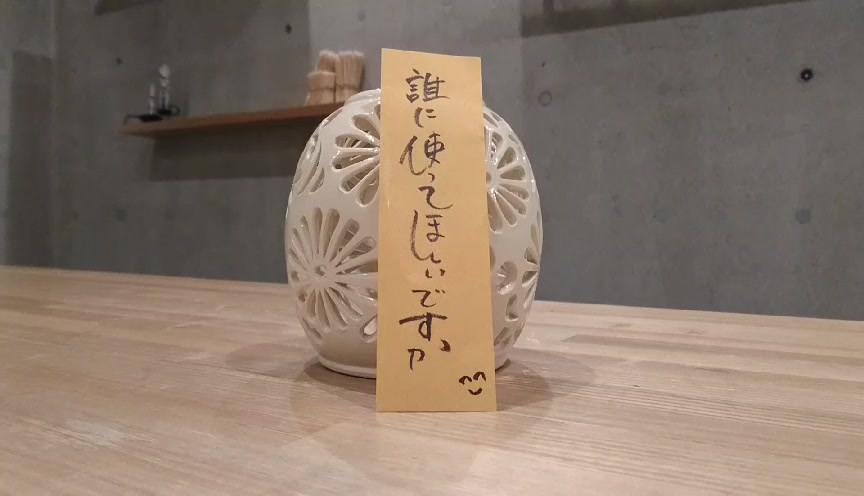 誰に使ってほしいですか